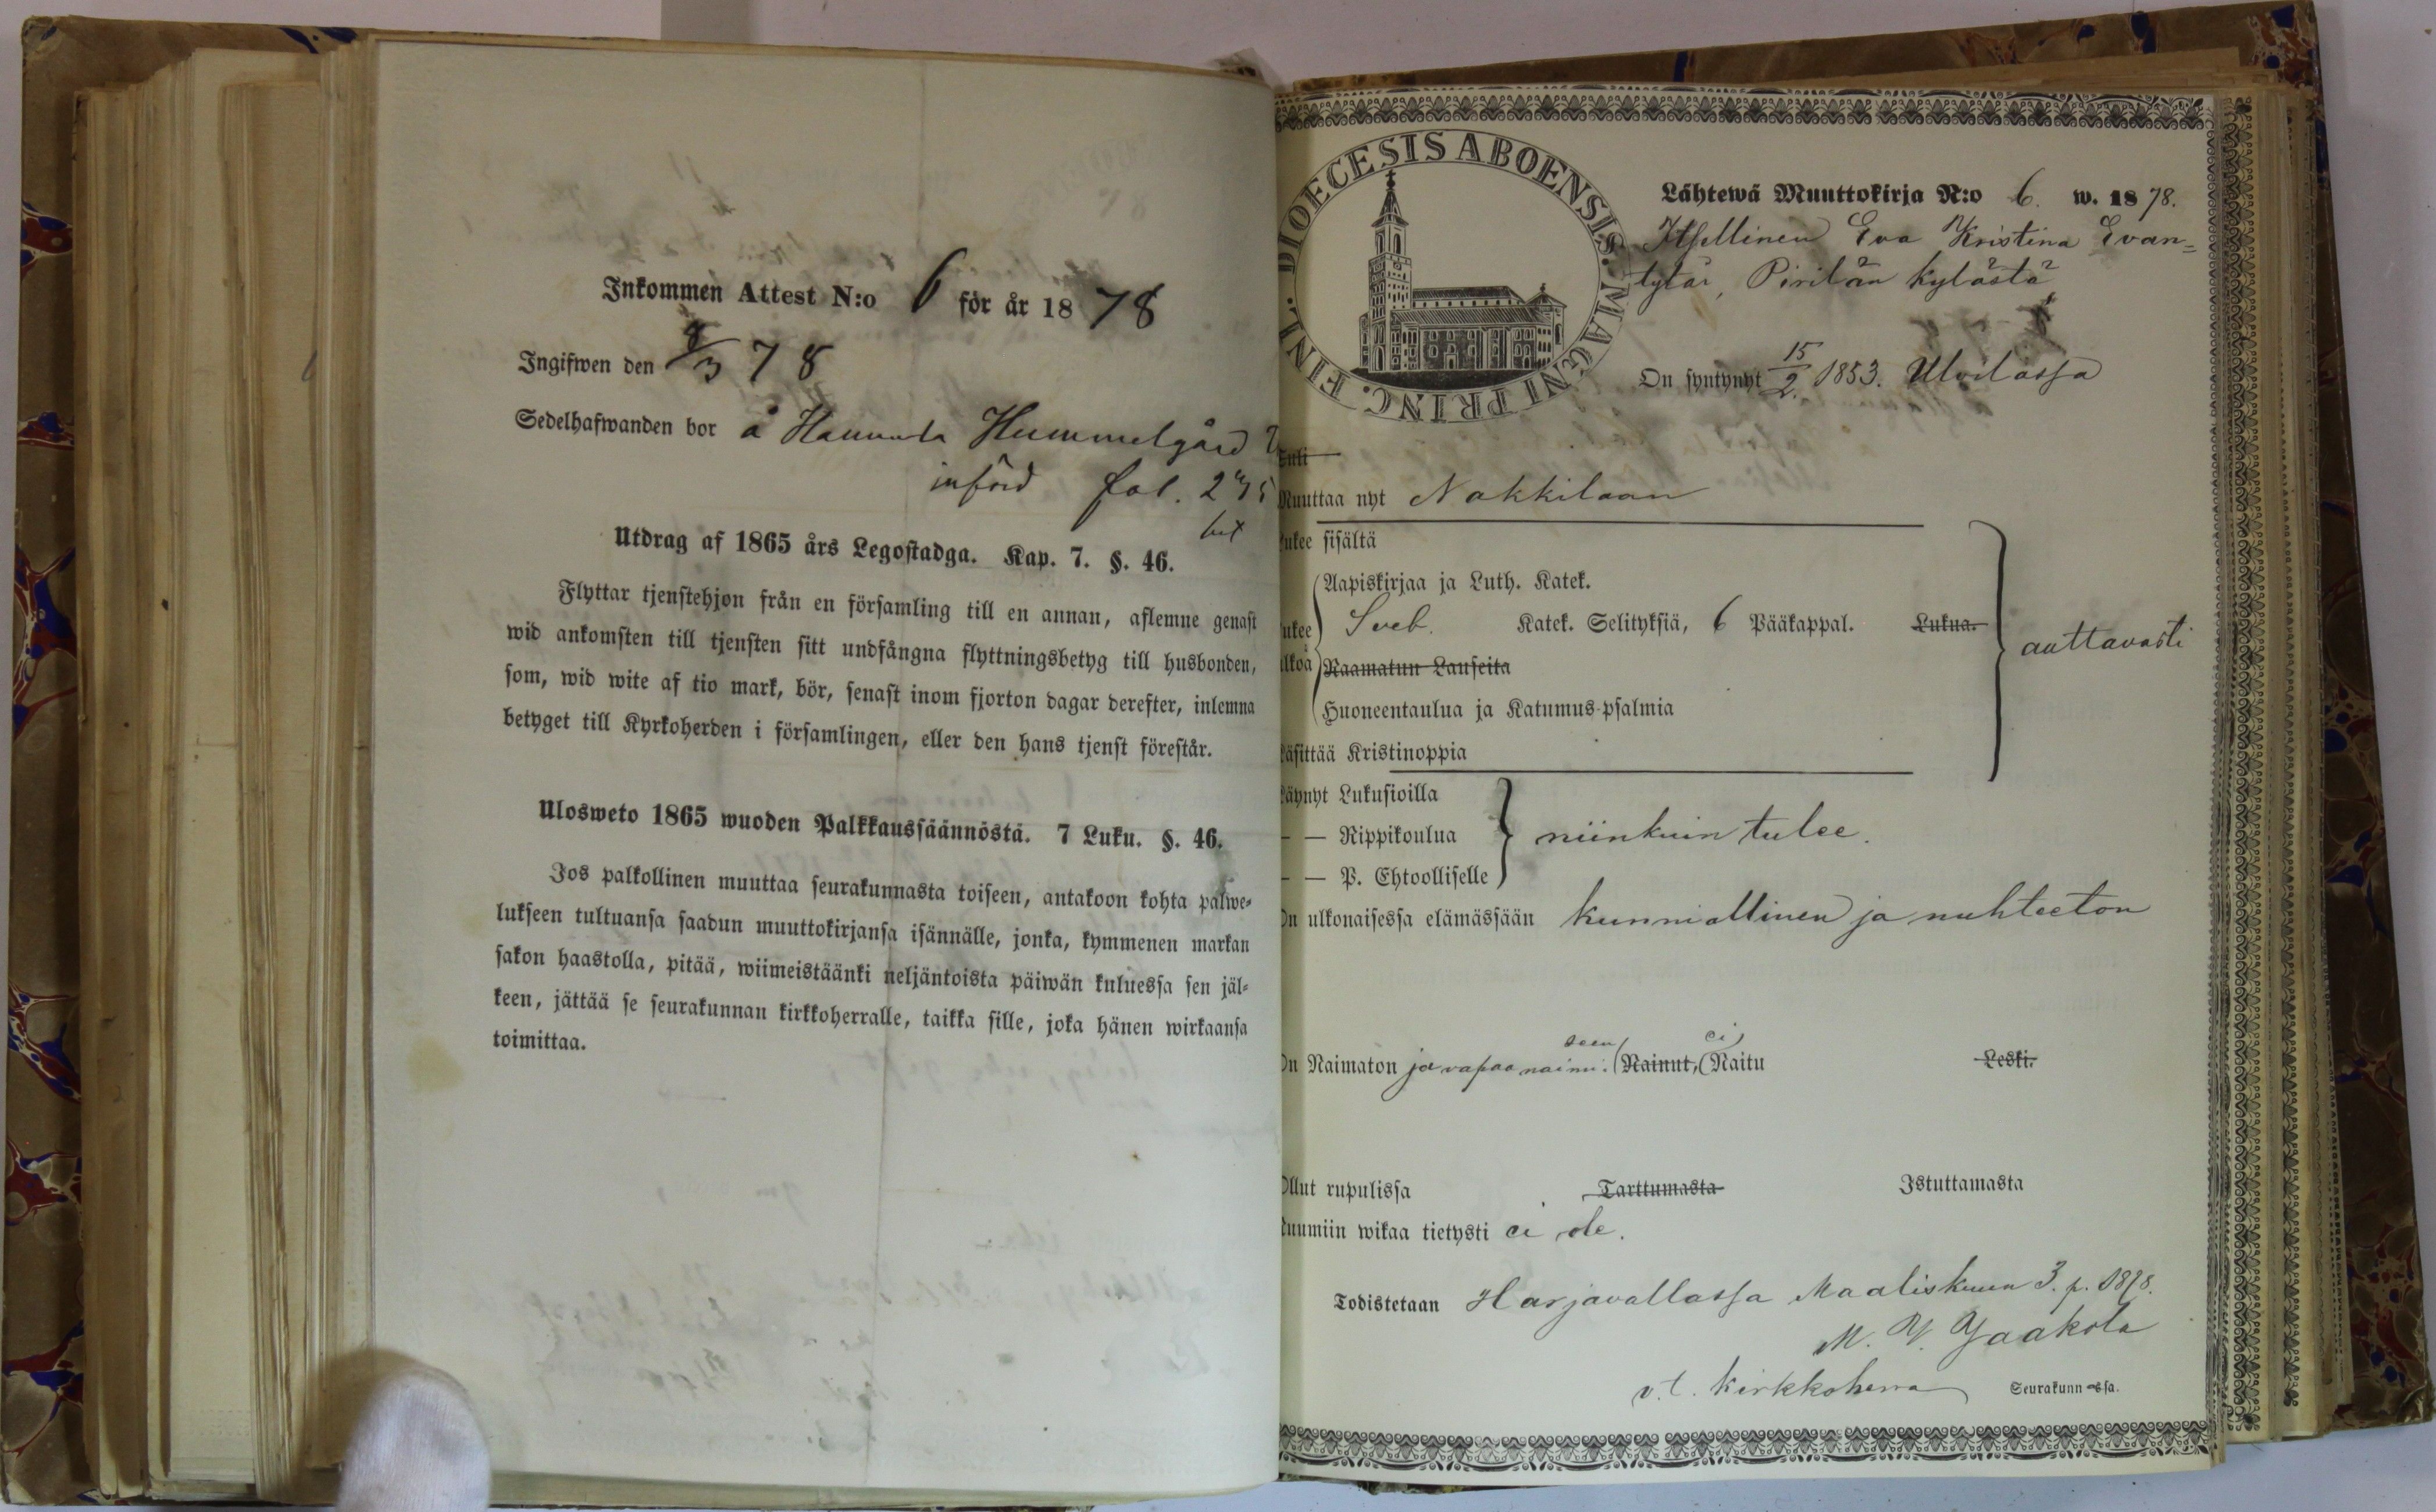 Inkommen Attest N:o 6 för år 1878
Ingifwen den 8/3 78
Sedelhafwanden bor å Hannula Hummelgård
införd fol. 275
Utdrag af 1865 års Legostadga. Kap. 7. §. 46.
Flyttar tjenstehjon från en församling till en annan, aflemne genast
wid ankomsten till tjensten sitt undfångna flyttningsbetyg till husbonden,
som, wid wite af tio mark, bör, senast inom fjorton dagar derefter, inlemna
betyget till Kyrkoherden i församlingen, eller den hans tjenst förestår.
Ulosweto 1865 wuoden Palkkaussäännöstä. 7 Luku. §. 46.
Jos palkollinen muuttaa seurakunnasta toiseen, antakoon kohta palwe-
lukseen tultuansa saadun muuttokirjansa isännälle, jonka, kymmenen markan
sakon haastolla, pitää, wiimeistäänki neljäntoista päiwän kuluessa sen jäl-
keen, jättää se seurakunnan kirkkoherralle, taikka sille, joka hänen wirkaansa
toimittaa.
DIOECESIS ABOENSIS. MAGNI PRINC. FINL.
Lähtewä Muuttokirja N:o 6. w. 1878.
Itsellinen Eva Kristina Evan-
tytär, Pirilän kylästä
On syntynyt 15/2. 1853. Ulvilassa
Tuli
Muuttaa nyt Nakkilaan
Lukee sisältä
Aapiskirjaa ja Luth. Katek.
Lukee ulkoa Sveb. Katek. Selityksiä, 6 Pääkappal. Lukua. auttavasti
Raamatun Lauseita
Huoneentaulua ja Katumus-psalmia
Käsittää Kristinoppia
Käynyt Lukusioilla
— — Rippikoulua niinkuin tulee.
— — P. Ehtoolliselle
On ulkonaisessa elämässään kunniallinen ja nuhteeton
On Naimaton ja vapaa naimi: seen (Nainut, (Naitu ei) Leski.
Ollut rupulissa Tarttumasta Istuttamasta
Ruumiin wikaa tietysti ei ole.
Todistetaan Harjavallassa Maaliskuun 3. p. 1878.
M. Y. Yaakola
v.t. kirkkoherra Seurakunnassa.